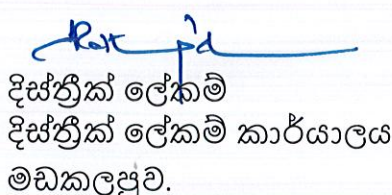 දිස්ත්‍රික් ලේකම්
දිස්ත්‍රික් ලේකම් කාර්යාලය
මඩකලපුව.